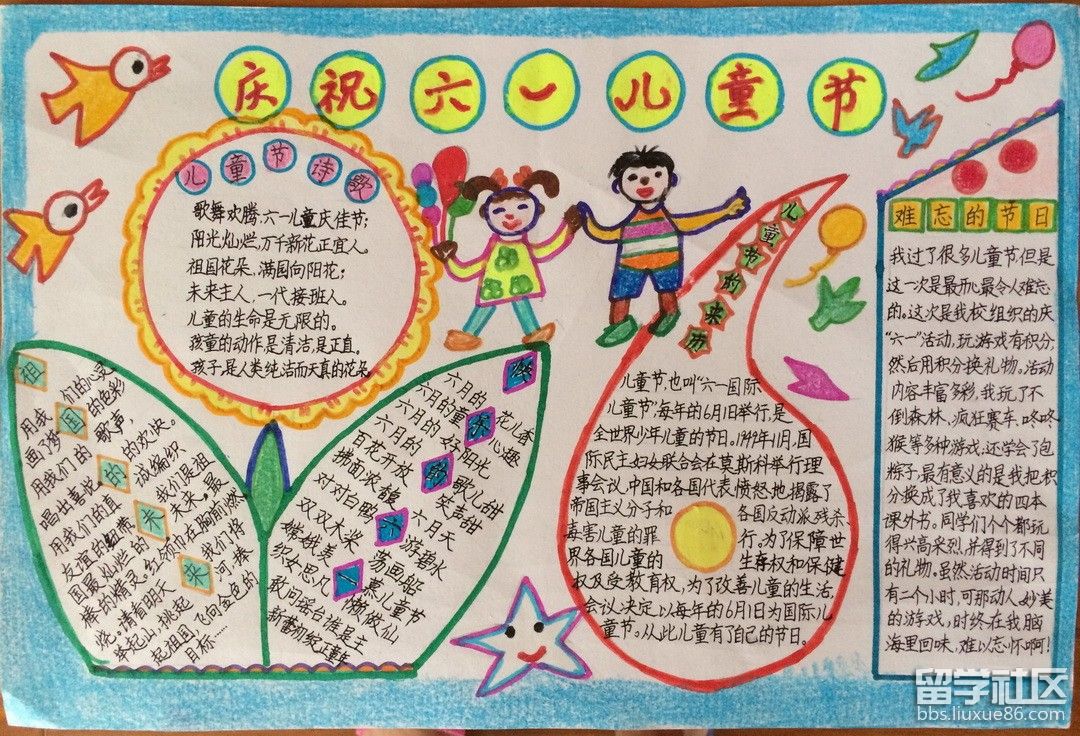 庆祝六一儿童节
儿童节诗歌
歌舞欢腾,六一儿童庆佳节;
阳光灿烂,万千新花正宜人。
祖国花朵、满园向阳花;
未来主人,一代接班人。
儿童的生命是无限的。
孩童的动作是清洁,是正直。
孩子,是人类纯洁而天真的花朵。
祖国的未来
用我们的心灵
画了梦的色彩
用我们的歌声
唱出喜悦的欢快。
用我们的真
友谊的
国最灿烂的未来。最
棒的精灵。红领巾在胸前燃
烧。清清明天,我们将
举起山,挑起
起祖国,飞向金色的
目标……
快乐的六一
六月的花儿香
六月的童心趣
六月的好阳光
百花开放歌儿甜
拂面浓馥笑声甜
对对白鹅六月天
双双木桨游碧水
嫦娥羡荡画船
织女思凡慕儿童节
敢问瑶台谁是主
懒做仙
儿童节的来历
儿童节,也叫“六一国际
儿童节”,每年的6月1日举行,是
全世界少年儿童的节日。1949年11月,国
际民主妇女联合会在莫斯科举行理
事会议,中国和各国代表愤怒地揭露了
帝国主义分子和各国反动派残杀、
毒害儿童的罪行。为了保障世
界各国儿童的生存权和保健
权及受教育权,为了改善儿童的生活,
会议决定以每年的6月1日为国际儿
童节。从此儿童有了自己的节日。
难忘的节日
我过了很多儿童节但是
这一次是最开心最令人难忘
的。这次是我校组织的庆
“六一”活动,玩游戏有积分,
然后用积分换礼物。活动
内容丰富多彩,我玩了不
倒森林、疯狂赛车、咚咚
猴等多种游戏,还学会了包
粽子,最有意义的是我把积
分换成了我喜欢的四本
课外书。同学们个个都玩
得兴高采烈,并得到了不同
的礼物。虽然活动时间只
有二个小时,可那动人、妙美
的游戏,时终在我脑
海里回味,难以忘怀啊!
留学社区
bbs.liuxue86.com